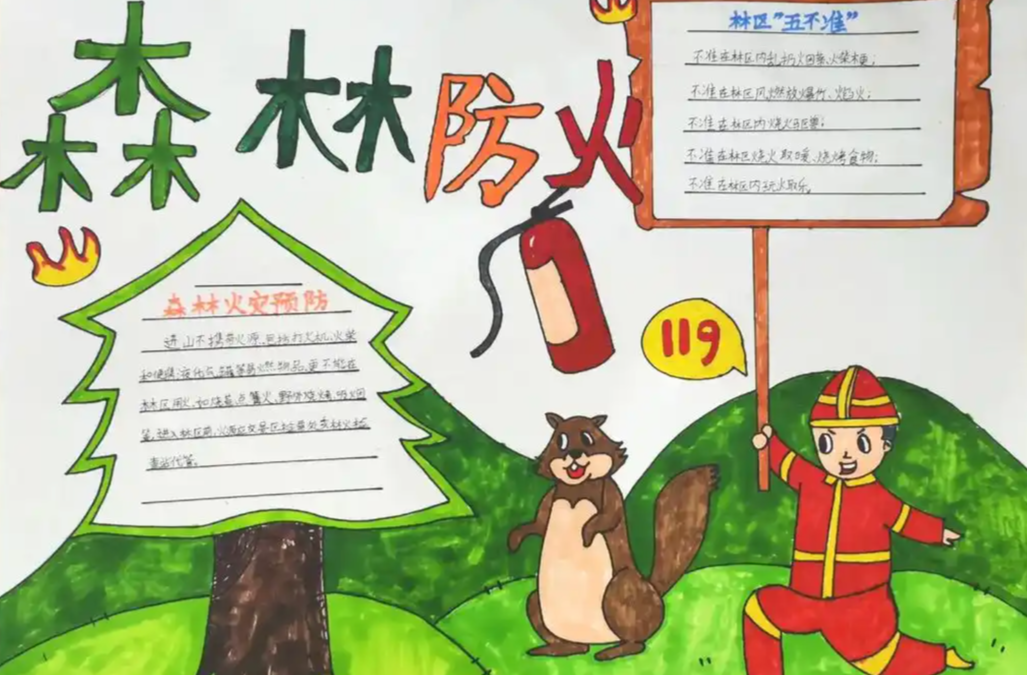 森林防火
林区"五不准"
不准在林区内乱扔烟蒂、火柴梗;
不准在林区风燃放爆竹、焰火;
不准在林区内烧火驱兽;
不准在林区烧火取暖、烧烤食物;
不准在林区内玩火取乐。
119
森林火灾预防
进山不携带火源,包括打火机、火柴
和使用液化气罐等易燃物品,更不能在
林区用火,如烧荒、点篝火、野外烧烤、吸烟
等,进入林区前,火源应交
查站代管。